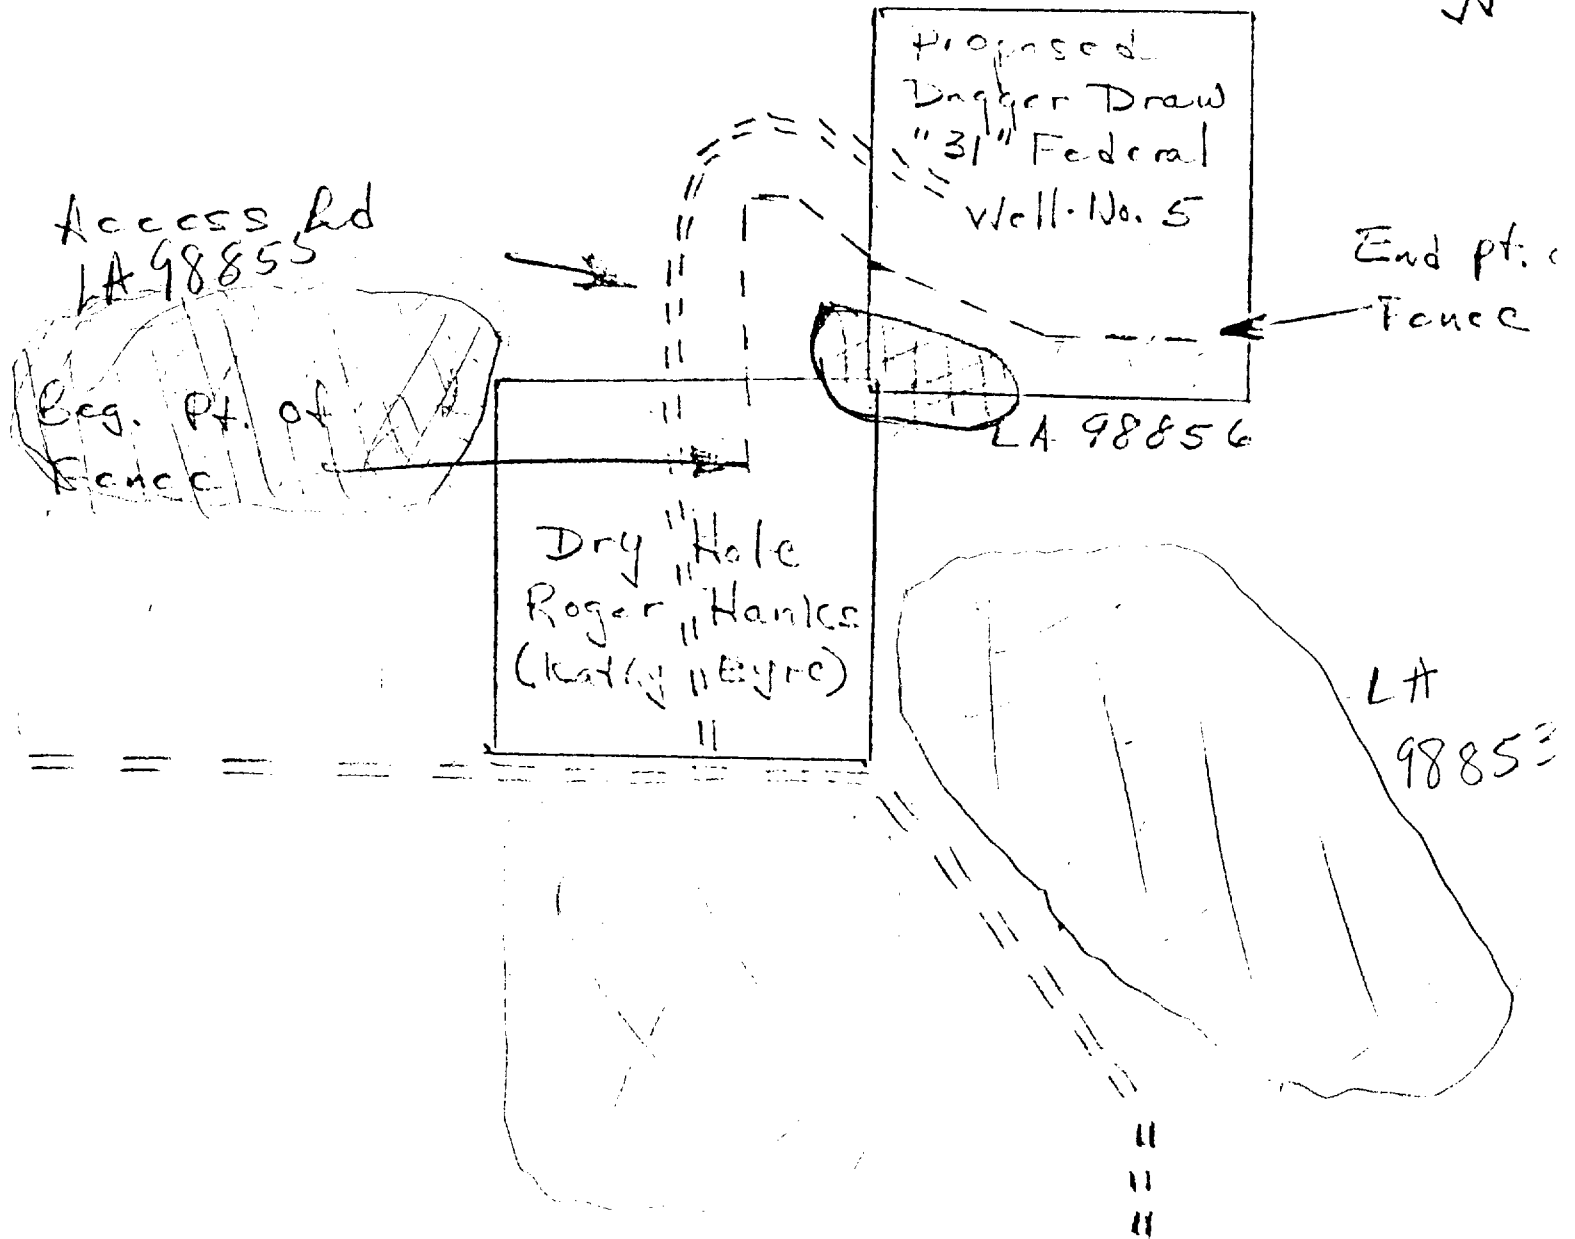 Proposed
Dagger Draw
"31" Federal
Well No. 5
Access Rd
LA 98855
End pt.
Fence
Beg. Pt. of
Fence
LA 98856
Dry Hole
Roger Hanks
(Kathy Eyre)
LA
98853